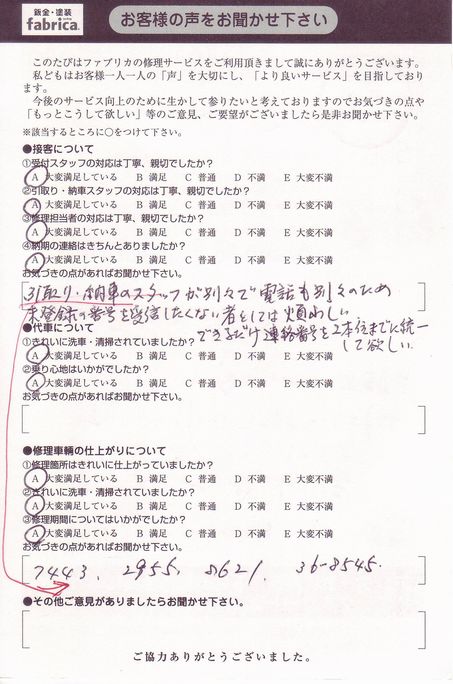 鈑金・塗装
fabrica
お客様の声をお聞かせ下さい
このたびはファブリカの修理サービスをご利用頂きまして誠にありがとうございます。
私どもはお客様一人一人の「声」を大切にし、「より良いサービス」を目指しております。
今後のサービス向上のために生かして参りたいと考えておりますのでお気づきの点や
「もっとこうして欲しい」等のご意見、ご要望がございましたら是非お聞かせ下さい。
※該当するところに○をつけて下さい。
●接客について
①受付スタッフの対応は丁寧、親切でしたか？
A 大変満足している B 満足 C 普通 D 不満 E 大変不満
②引取り・納車スタッフの対応は丁寧、親切でしたか？
A 大変満足している B 満足 C 普通 D 不満 E 大変不満
③修理担当者の対応は丁寧、親切でしたか？
A 大変満足している B 満足 C 普通 D 不満 E 大変不満
④納期の連絡はきちんとありましたか？
A 大変満足している B 満足 C 普通 D 不満 E 大変不満
お気づきの点があればお聞かせ下さい。
引取り・納車のスタッフが別々で電話も別々のため
未登録の番号を受信したくない者としては煩わしい
できるだけ連絡番号を2本位までに統一
して欲しい.
●代車について
①きれいに洗車・清掃されていましたか？
A 大変満足している B 満足 C 普通 D 不満 E 大変不満
②乗り心地はいかがでしたか？
A 大変満足している B 満足 C 普通 D 不満 E 大変不満
お気づきの点があればお聞かせ下さい。
●修理車輌の仕上がりについて
①修理箇所はきれいに仕上がっていましたか？
A 大変満足している B 満足 C 普通 D 不満 E 大変不満
②きれいに洗車・清掃されていましたか？
A 大変満足している B 満足 C 普通 D 不満 E 大変不満
③修理期間についてはいかがでしたか？
A 大変満足している B 満足 C 普通 D 不満 E 大変不満
お気づきの点があればお聞かせ下さい。
7443. 2955. 8621. 36-8545.
●その他ご意見がありましたらお聞かせ下さい。
ご協力ありがとうございました。